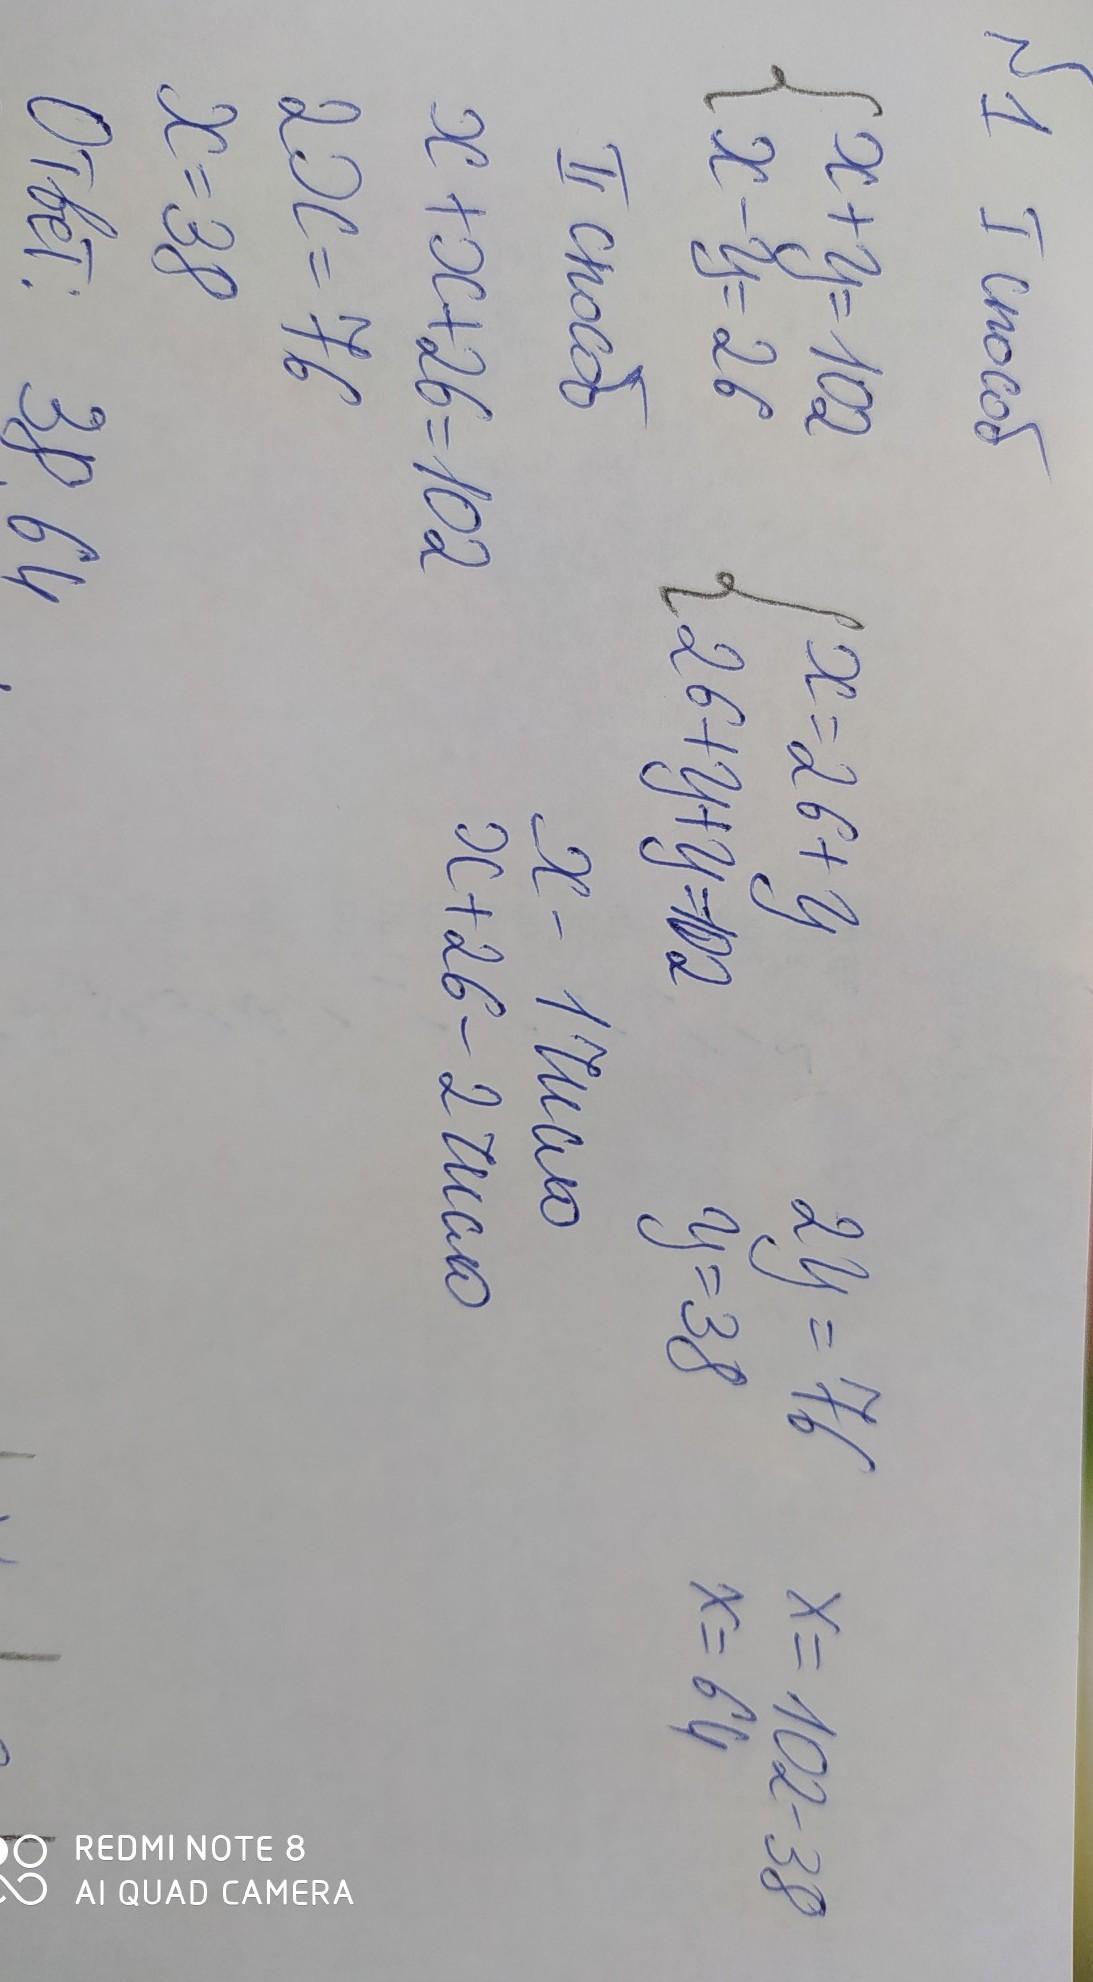 №1 I способ
{x+y=102
x-y=26
{x=26+y
26+y+y=102
2y=76
y=38
x=102-38
x=64
II способ
x+x+26=102
2x=76
x=38
x- 1 число
x+26- 2 число
Ответ: 38, 64
REDMI NOTE 8
AI QUAD CAMERA